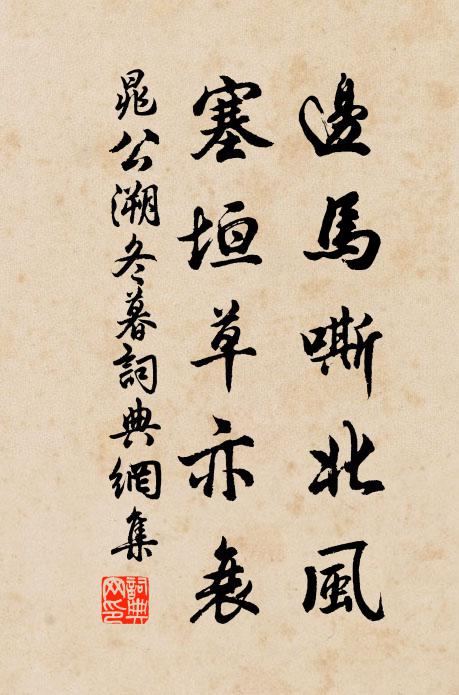 邊馬嘶北風
塞垣草亦衰
晁公溯冬暮詞典網集
詞典網印